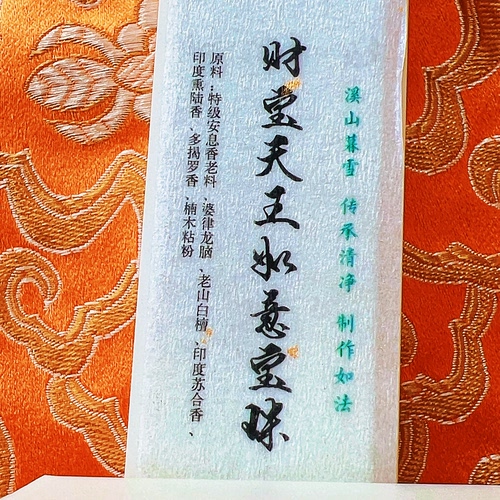 溪山暮雪 传承清净 制作如法
财宝天王如意宝珠
原料：特级安息香老料、婆律龙脑、老山白檀、印度苏合香、
印度熏陆香、多揭罗香、楠木粘粉